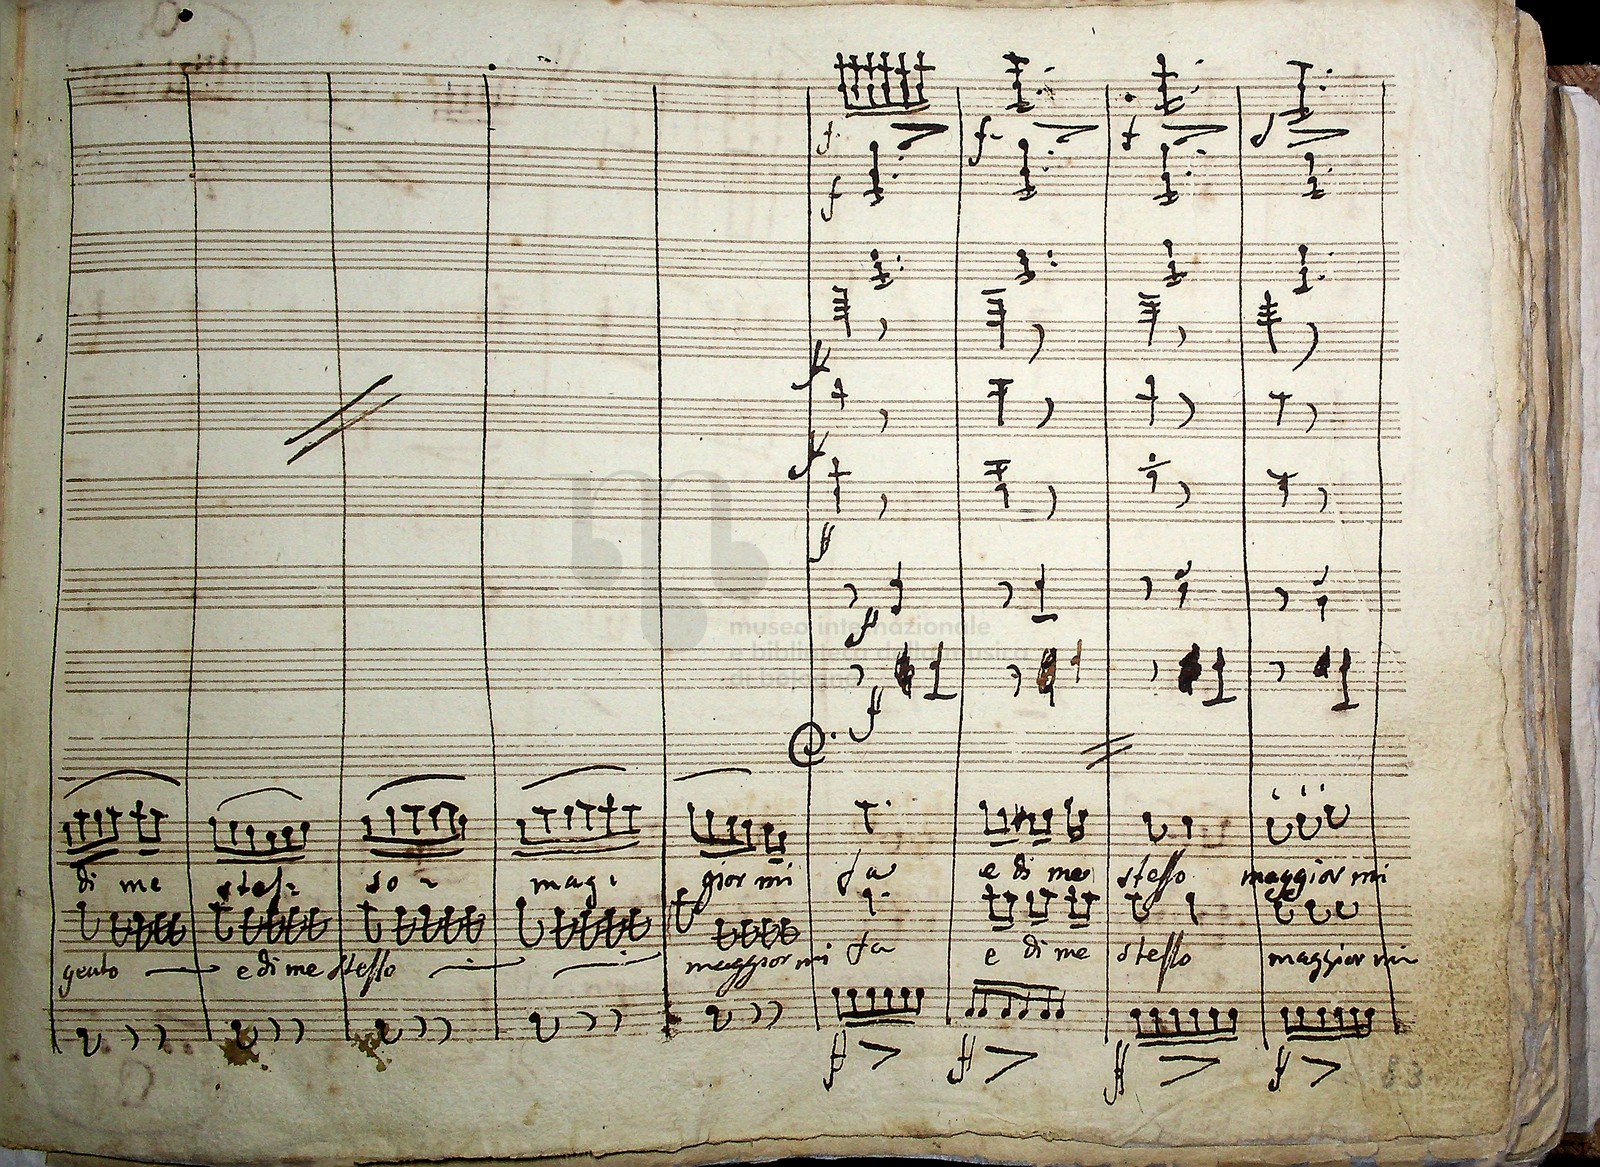 f. f- f f
f
f
f
ff
f
museo internazionale
e biblioteca della musica
di bologna
f
di me stes- so - mag- gior mi fa e di me stesso maggior mi
gento e di me stesso maggior mi fa e di me stesso maggior mi
ff ff ff ff
83